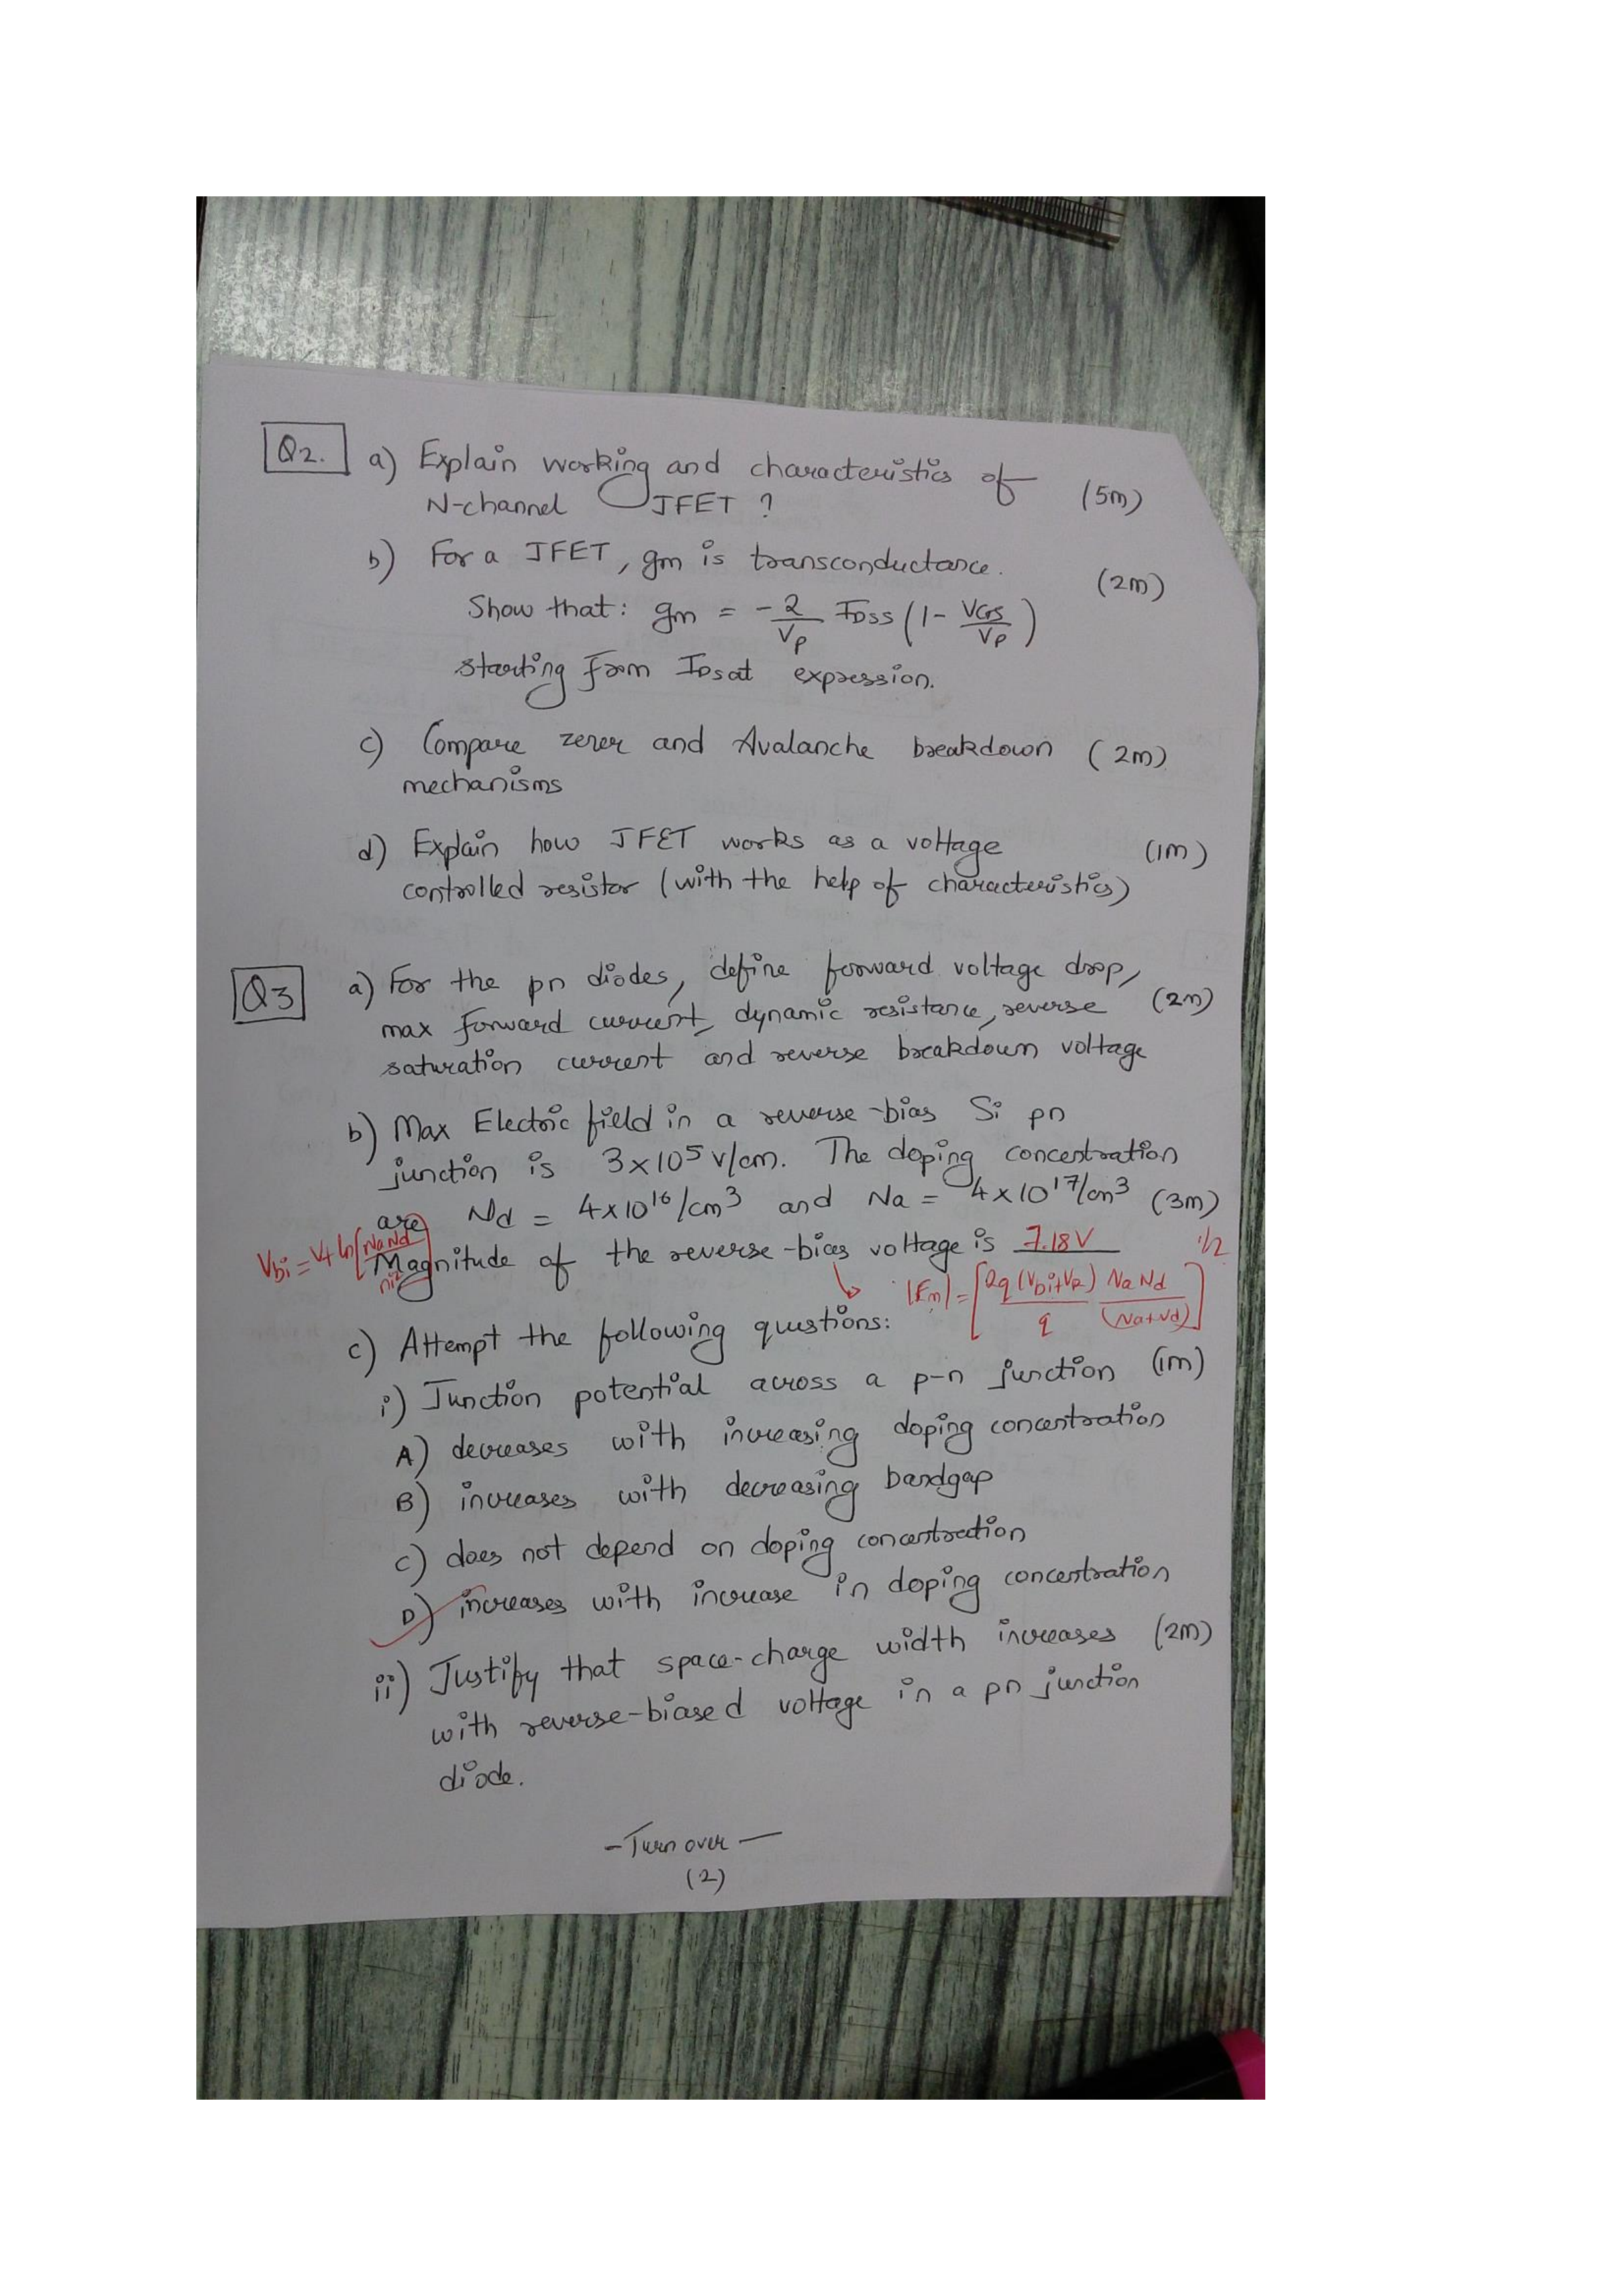 Q2. a) Explain working and characteristics of
N-channel JFET ? (5m)
b) For a JFET, gm is transconductance. (2m)
Show that: gm = -2/Vp IDSS (1- VGS/Vp)
starting from IDsat expression.
c) Compare zener and Avalanche breakdown (2m)
mechanisms
d) Explain how JFET works as a voltage (1m)
controlled resistor (with the help of characteristics)
Q3 a) For the pn diodes, define forward voltage drop,
max forward current, dynamic resistance, reverse (2m)
saturation current and reverse breakdown voltage
b) Max Electric field in a reverse-bias Si pn
junction is 3x10⁵ V/cm. The doping concentration
are Nd = 4x10¹⁶/cm³ and Na = 4x10¹⁷/cm³ (3m)
Vbi = Vt ln[NaNd/ni²]
Magnitude of the reverse-bias voltage is 7.18V
↳ |Em| = [2q(Vbi+VR)/q NaNd/(Na+Nd)] 1/2
c) Attempt the following questions:
i) Junction potential across a p-n junction (1m)
A) decreases with increasing doping concentration
B) increases with decreasing bandgap
C) does not depend on doping concentration
D) increases with increase in doping concentration
ii) Justify that space-charge width increases (2m)
with reverse-biased voltage in a pn junction
diode.
- Turn over -
(2)